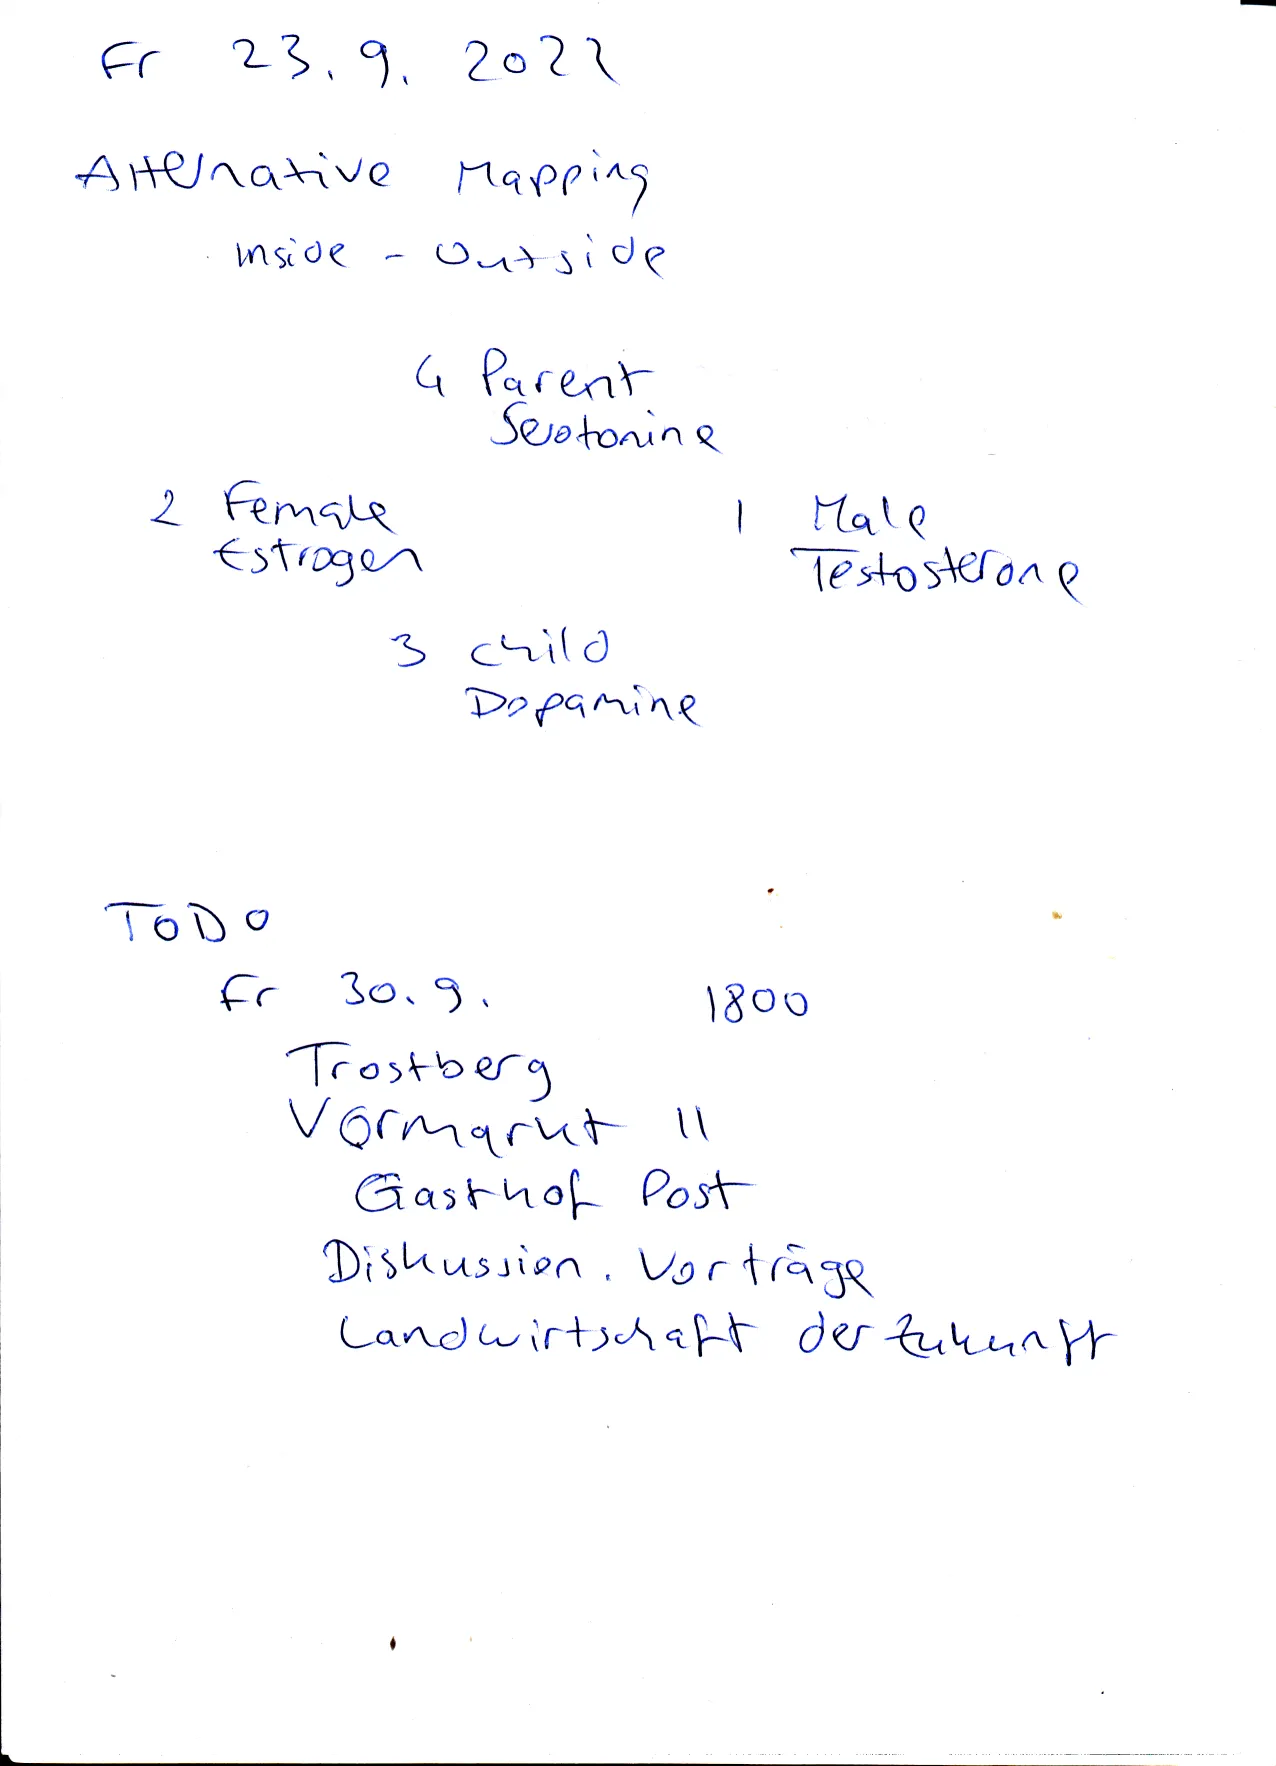 Fr 23.9. 2022
Alternative Mapping
inside - Outside
4 Parent
Serotonine
2 Female
Estrogen
1 Male
Testosterone
3 child
Dopamine
TODO
Fr 30.9. 1800
Trostberg
Vormarkt 11
Gasthof Post
Diskussion. Vorträge
Landwirtschaft der Zukunft